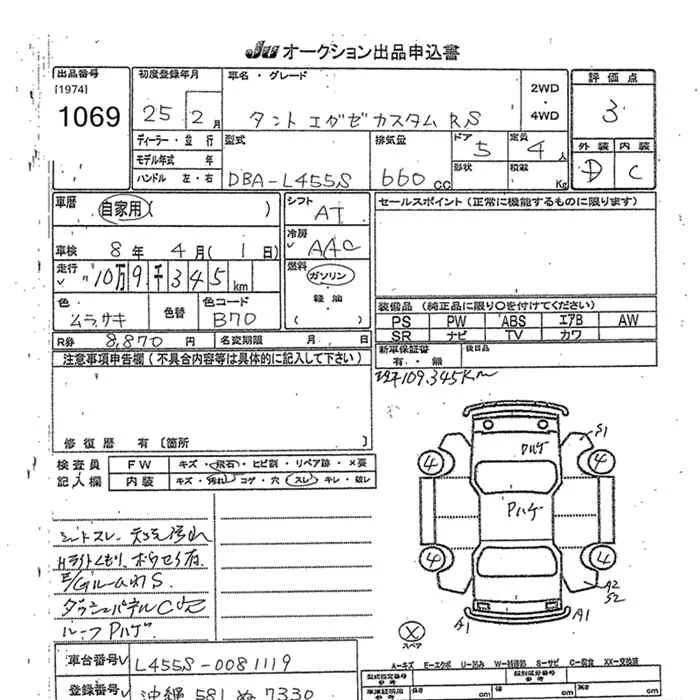 JU オークション出品申込書
出品番号
[1974]
1069
初度登録年月
25 2月
ディーラー・並行
モデル年式 年
ハンドル 左・右
車名・グレード
タント エグゼカスタム RS
2WD
・
4WD
型式
DBA-L455S
排気量
660 c.c
ドア
5
形状
定員
4人
積載
Kg
評価点
3
外装 内装
D C
車歴
自家用( )
車検 8年 4月( 1日)
走行
10万9千345 km
色
ムラサキ
色替
色コード
B70
シフト
AT
冷房
AAC
燃料
ガソリン
・
軽油
( )
セールスポイント(正常に機能するものに限ります)
装備品(純正品に限り○を付けてください)
PS PW ABS エアB AW
SR ナビ TV カワ
新車保証書
有・無
後日品
R券 8,870円
名変期限 月 日
注意事項申告欄(不具合内容等は具体的に記入して下さい)
修復歴 有〔箇所 〕
109.345Km
検査員
記入欄
FW キズ・飛石・ヒビ割・リペア跡・×要
内装 キズ・汚れ・コゲ・穴・スレ・キレ・破レ
シートスレ 天丸汚れ
Hライトくもり.
E/Gルーム内S
ルーフPハゲ
S1
Pハゲ
4 4
Pハゲ
4 4
A2
S2
A1 A1
X
スペア
車台番号 L455S-0081119
登録番号 沖縄 581 ぬ 7330
A-キズ E-エクボ U-凹み W-補修跡 S-サビ C-腐食 XX-交換済
型式指定番号
類別区分番号
長さ cm
幅 cm
高さ cm